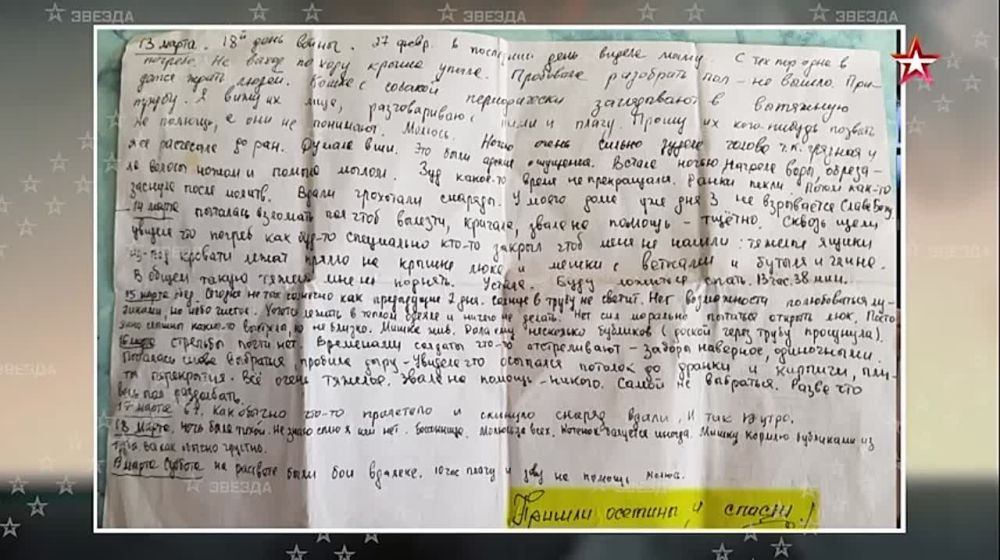 ЗВЕЗДА
13 марта. 18й день войны. 27 февр. в последний день видела маму. С тех пор одна в
погребе. Не выход по ходу крыша упала. Пробовала разобрать пол - не вышло. При-
дется ждать людей. Кошка с собакой периодически заглядывают в вытяжную
трубу. Я вижу их лица, разговариваю с ними и плачу. Прошу их кого-нибудь позвать
на помощь, а они не понимают. Молюсь. Ночью очень сильно зудела голова т.к. грязная и
я расчесала до ран. Думала вши. Это были ощущения. Встала ночью нагрела воды, обреза-
ла волосы ножом и помыла мылом. Зуд какое-то время не прекращался. Ранки пекли. Потом как-то
заснула после молитв. Вдали грохотали снаряды. У моего дома уже дня 3 не взрывается Слава Богу.
14 марта пыталась взломать пол чтоб вылезти, кричала, звала на помощь - тщетно. Сквозь щели
увидела что погреб как буд-то специально кто-то закрыл чтоб меня не нашли: тяжелые ящики
из-под кровати лежат прямо на крышке люка и мешки с ветками и бутыля и глина.
В общем такую тяжесть мне не поднять. Устала. Буду ложиться спать. 13 час. 38 мин.
15 марта Сегодня не так солнечно как предыдущие 2 дня. Солнце в трубу не светит. Нет возможности полюбоваться лу-
чиками, но небо чистое. Хочется лежать в теплом одеяле и ничего не делать. Нет сил морально пытаться открыть люк. Посто-
янно слышны какие-то выстрелы, но не близко. Мишка жив. Дала ему несколько бубликов (доской через трубу просунула).
16 марта стрельбы почти нет. Временами солдаты что-то отстреливают - заборы наверное, одиночными.
Пыталась снова выбраться пробила дыру - Увидела что осыпался потолок до дранки и кирпичи, пли-
та перекрытия. Всё очень тяжелое. Звала на помощь - никого. Самой не выбраться. Разве что
весь пол раздолбать.
17 марта Как обычно что-то пролетело и скинуло снаряд вдали. И так до утра.
18 марта. Ночь была тихой. Не знаю сплю я или нет. Бессонница. Молюсь за всех. Котенок иногда. Мишку кормлю бубликами из
как обычно грустно.
19 марта Суббота на рассвете были бои вдалеке. 10 час плачу и зову на помощь
Пришли осетины и спасли!